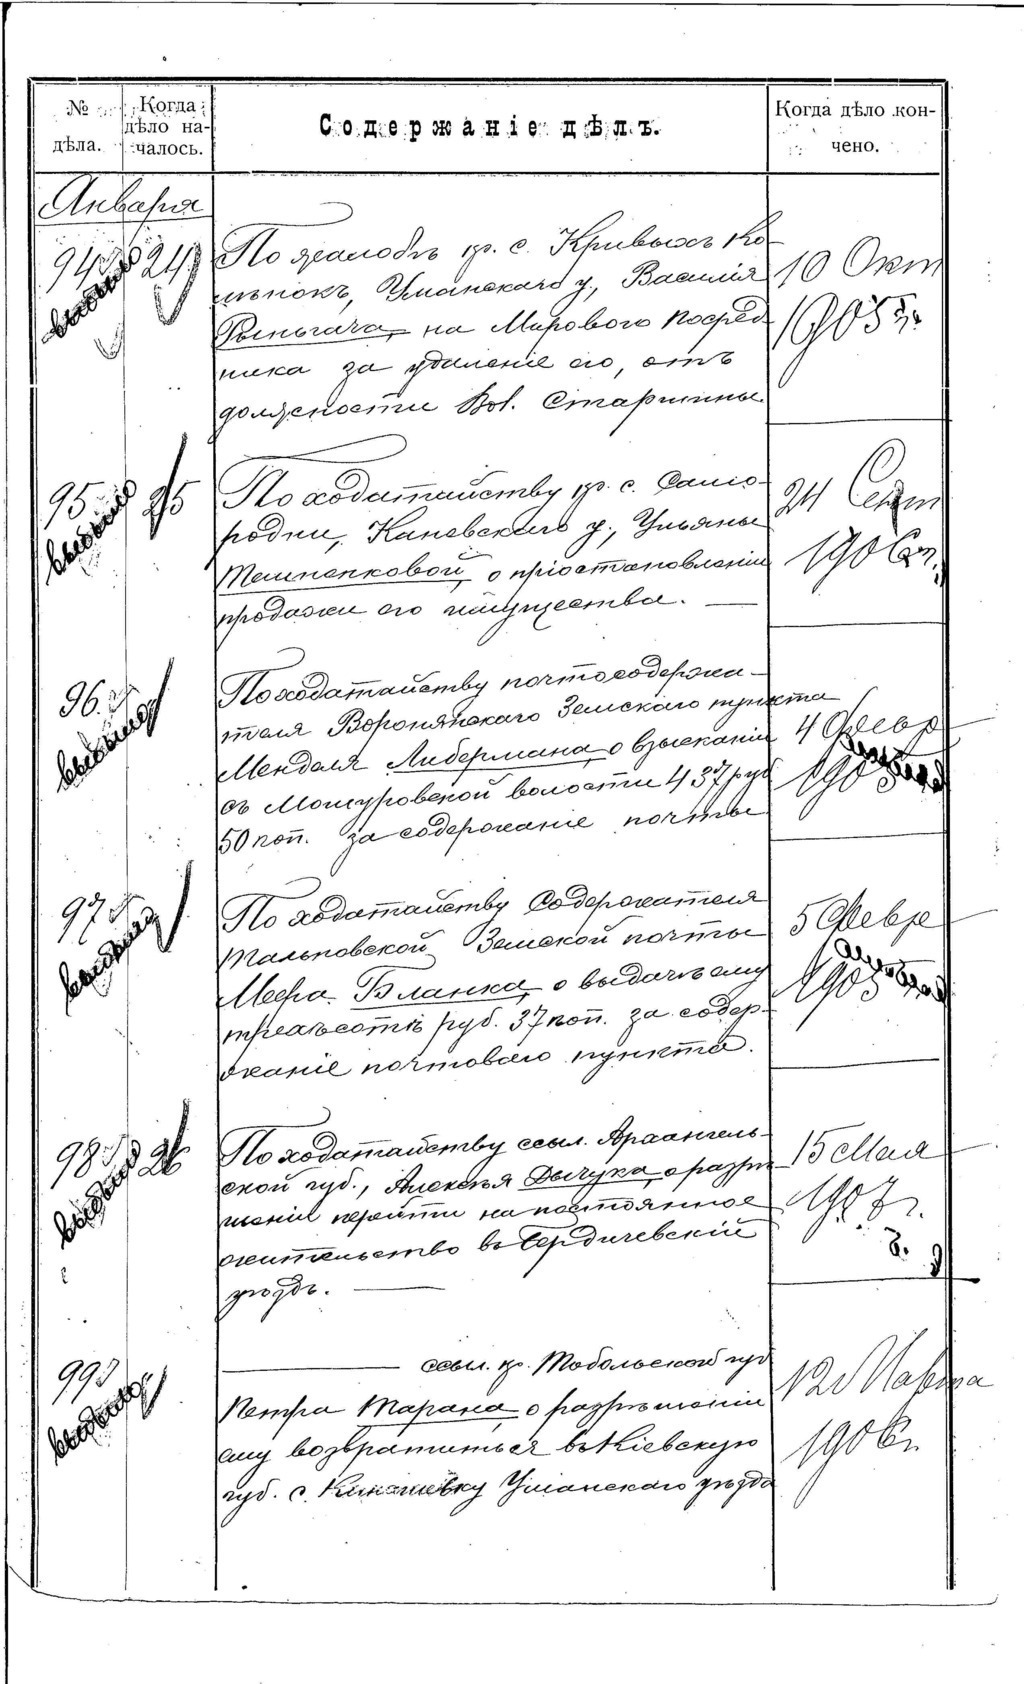 № дѣла.
Когда дѣло на-
чалось.
Содержаніе дѣлъ.
Когда дѣло кон-
чено.
Января
94 24
По жалобѣ кр. с. Кривыхъ Ко-
лѣнокъ, Уманскаго у., Василія
на Мирового Посред-
ника за удаленіе его, отъ
должности Вол. Старшины.
10 Окт
1905 г.
выбыло
95 25
По ходатайству кр. с. Само-
родни, Каневскаго у., Ульяны
о пріостановленіи
продажи его имущества.
24 Сент
1906 г.
выбыло
96
По ходатайству почтосодержа-
теля Воронянскаго Земскаго пункта
Менделя Либермана о взысканіи
съ Мошуровской волости 437 руб
50 коп. за содержаніе почты
4 Февр
1905
выбыло
97
По ходатайству Содержателя
Тальновской Земской почты
Меера Бланка о выдачѣ ему
трехсотъ руб. 37 коп. за содер-
жаніе почтоваго пункта.
5 Февр
1905
выбыло
98 26
По ходатайству ссыл. Архангель-
ской губ., Алексѣя Дычука о разрѣ-
шеніи перейти на постоянное
жительство въ Бердичевскій
уѣздъ.
15 Мая
1907 г.
выбыло
99
ссыл. кр. Тобольской губ
Петра Тарана о разрѣшеніи
ему возвратиться въ Кіевскую
губ. с. Уманскаго уѣзда
12 Марта
1906 г.
выбыло